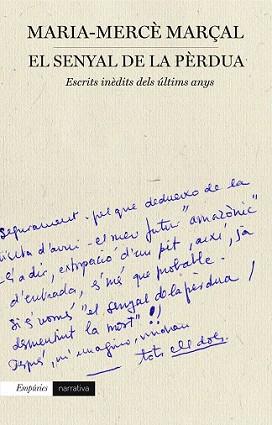 MARIA-MERCÈ MARÇAL
EL SENYAL DE LA PÈRDUA
Escrits inèdits dels últims anys
Segurament -pel que dedueixo de la
visita d'avui- el meu futur "amazònic"
-és a dir, extirpació d'un pit, així, ja
d'entrada, és més que probable.
Si és només "el senyal de la pèrdua /
desmentint la mort"!
Després, m'imagino, vindran
tots els dols.
Empúries
narrativa